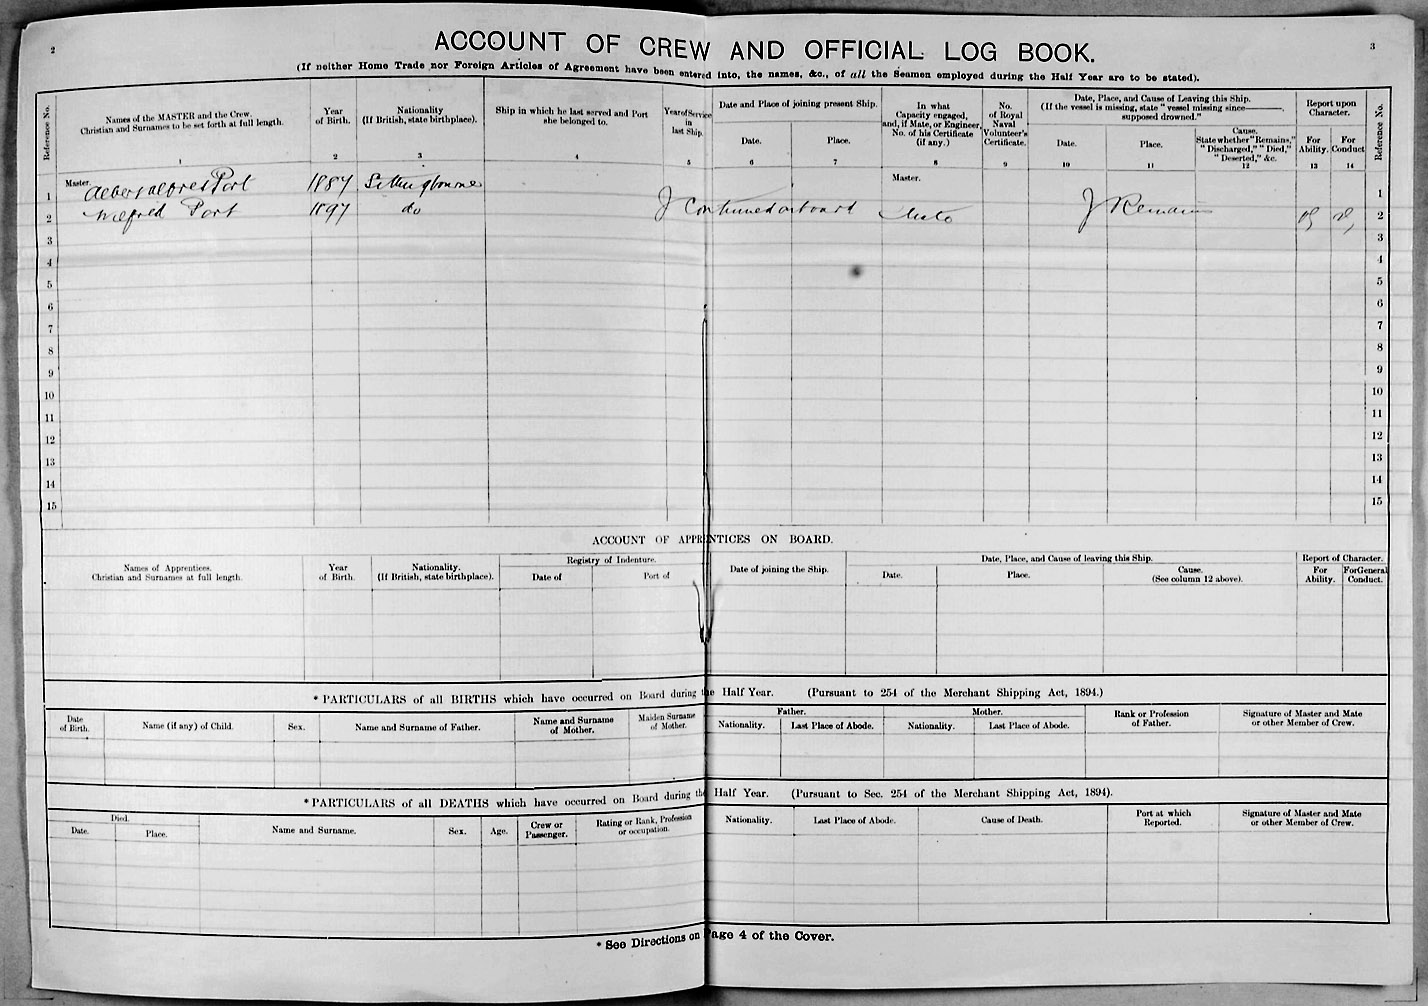 2
3
ACCOUNT OF CREW AND OFFICIAL LOG BOOK.
(If neither Home Trade nor Foreign Articles of Agreement have been entered into, the names, &c., of all the Seamen employed during the Half Year are to be stated).
Reference No.
Names of the MASTER and the Crew. Christian and Surnames to be set forth at full length.
Year of Birth.
Nationality (If British, state birthplace).
Ship in which he last served and Port she belonged to.
Year of Service in last Ship.
Date and Place of joining present Ship.
Date.
Place.
In what Capacity engaged, and, if Mate, or Engineer, No. of his Certificate (if any.)
No. of Royal Naval Volunteer's Certificate.
Date, Place, and Cause of Leaving this Ship.
(If the vessel is missing, state "vessel missing since———, supposed drowned."
Date.
Place.
Cause. State whether "Remains," "Discharged," "Died," "Deserted," &c.
Report upon Character.
For Ability.
For Conduct
Reference No.
1 2 3 4 5 6 7 8 9 10 11 12 13 14
1 Master. Albert Alfred Port 1887 Sittingbourne Master. 1
2 Wilfred Port 1897 do Continued on board Mate Remains 2
3 3
4 4
5 5
6 6
7 7
8 8
9 9
10 10
11 11
12 12
13 13
14 14
15 15
ACCOUNT OF APPRENTICES ON BOARD.
Names of Apprentices. Christian and Surnames at full length.
Year of Birth.
Nationality. (If British, state birthplace).
Registry of Indenture.
Date of
Port of
Date of joining the Ship.
Date, Place, and Cause of leaving this Ship.
Date.
Place.
Cause. (See column 12 above).
Report of Character.
For Ability.
For General Conduct.
* PARTICULARS of all BIRTHS which have occurred on Board during the Half Year. (Pursuant to 254 of the Merchant Shipping Act, 1894.)
Date of Birth.
Name (if any) of Child.
Sex.
Name and Surname of Father.
Name and Surname of Mother.
Maiden Surname of Mother.
Father.
Nationality.
Last Place of Abode.
Mother.
Nationality.
Last Place of Abode.
Rank or Profession of Father.
Signature of Master and Mate or other Member of Crew.
* PARTICULARS of all DEATHS which have occurred on Board during the Half Year. (Pursuant to Sec. 254 of the Merchant Shipping Act, 1894).
Died.
Date.
Place.
Name and Surname.
Sex.
Age.
Crew or Passenger.
Rating or Rank, Profession or occupation.
Nationality.
Last Place of Abode.
Cause of Death.
Port at which Reported.
Signature of Master and Mate or other Member of Crew.
* See Directions on Page 4 of the Cover.